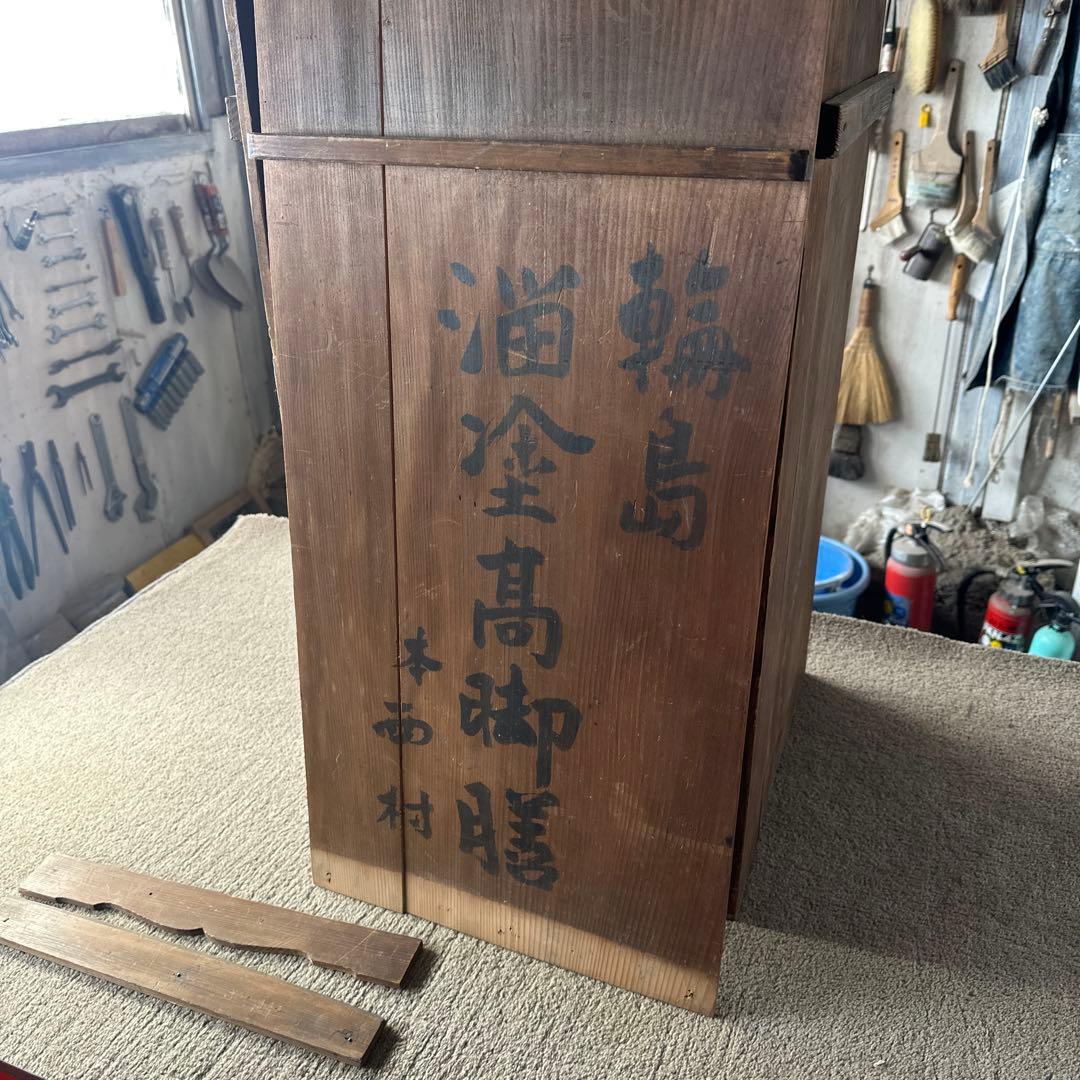 輪島
溜塗髙脚膳
本西村